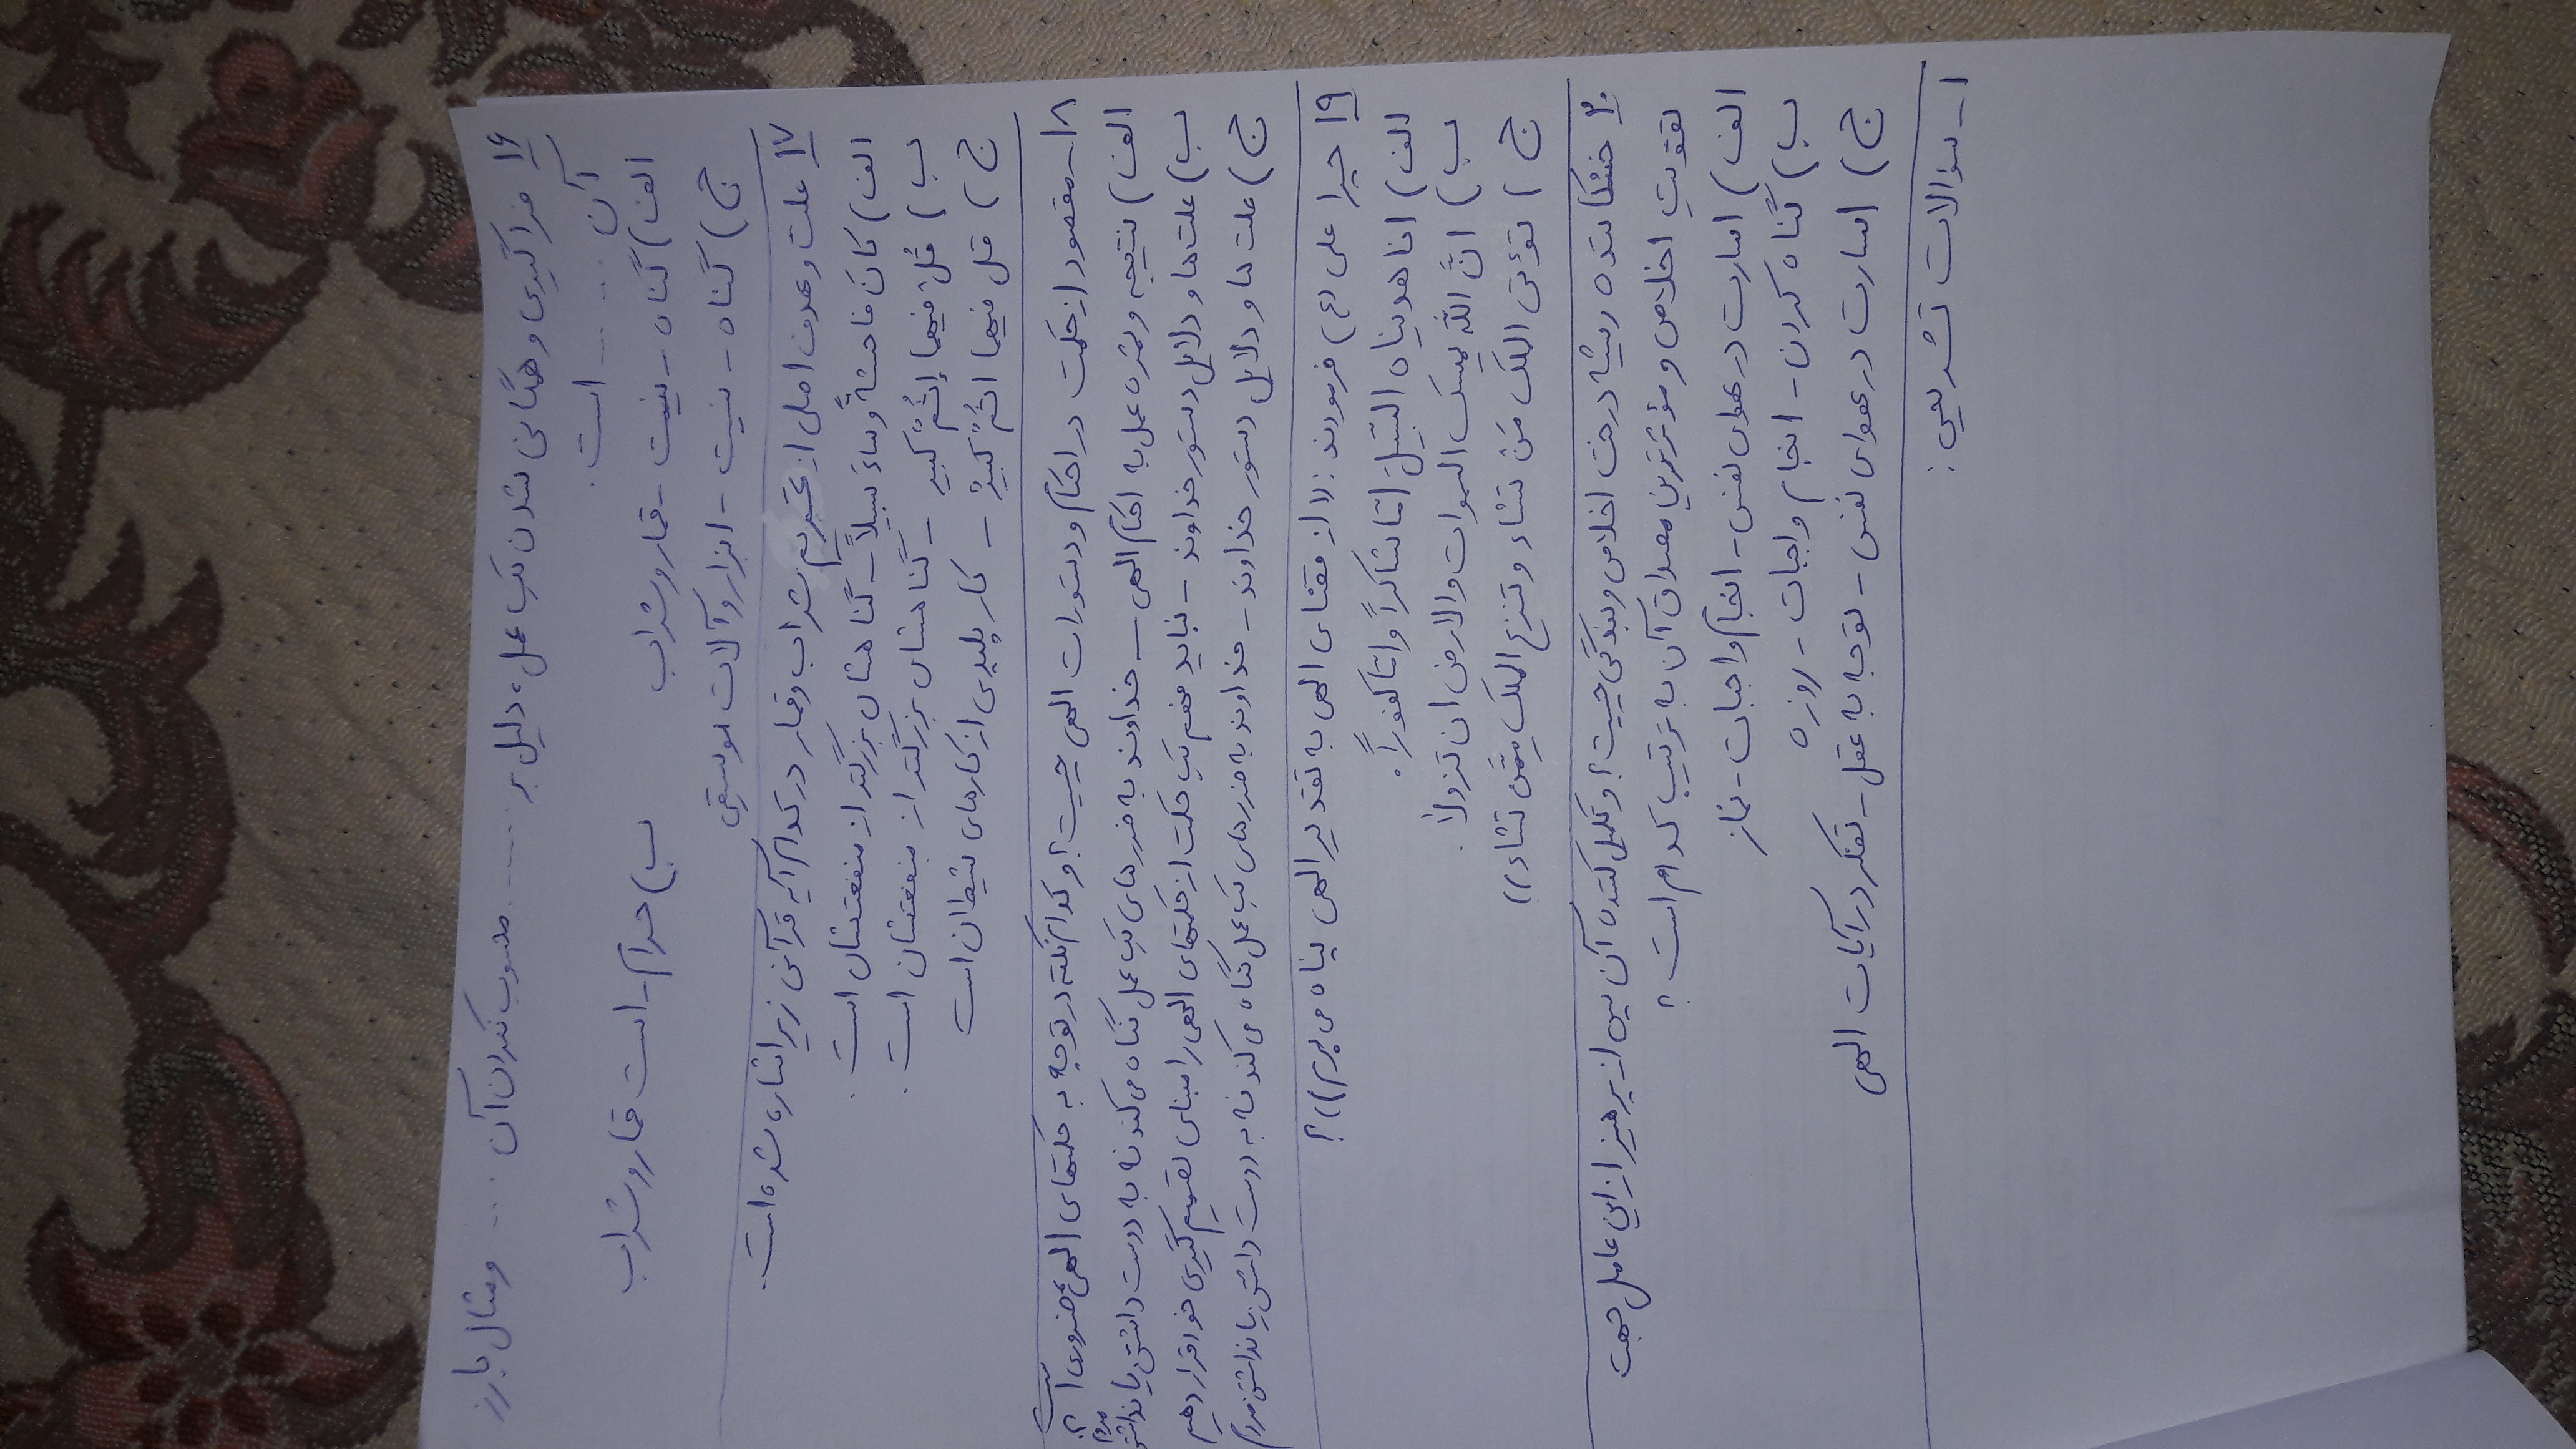 ۱۶ فراگیری و همگانی شدن یک عمل، دلیل بر ...... محسوب نکردن آن .... و مثال بارز
آن ...... است.
الف) گناه - نیست - قمار و شراب ب) حرام - است قمار و شراب
ج) گناه - نیست - ابزار و آلات موسیقی
۱۷ علت و هدف اصلی از تحریم شراب و قمار در کدام آیه قرآنی زیر اشاره شده است.
الف) کانَ فاحشةً و ساءَ سبیلاً - گناهشان بزرگتر از منفعتشان است.
ب) قُلْ فیهما إثْمٌ کبیر - گناهشان بزرگتر از منفعتشان است.
ج) قل فیهما اثمٌ کبیرٌ - کار پلیدی از کارهای شیطان است
۱۸ - مقصود از حکمت در احکام و دستورات الهی چیست؟ و کدام نکته در توجه به حکمتهای الهی ضروری است؟
الف) نتیجه و ثمره عمل به احکام الهی - خداوند به ضررهای یک عمل نگاه می کند نه به دوست داشتن یا نداشتن مردم
ب) علت ها و دلایل دستور خداوند - نباید فهم یک حکمت از حکمتهای الهی را مبنای تصمیم گیری خود قرار دهیم
ج) علت ها و دلایل دستور خداوند - خداوند به ضررهای یک عمل نگاه می کند نه به دوست داشتن یا نداشتن مردم
۱۹ چرا علی (ع) فرمودند: «از قضای الهی به تقدیر الهی پناه می برم»؟
الف) انا هدیناه السّبیلَ امّا شاکراً و امّا کفوراً.
ب) انَّ اللّهَ یمسک السموات والارض ان تزولا.
ج) تؤتی الملک مَنْ تشاء و تنزع الملک مِمَّن تشاء»
۲۰ خشکاننده ریشه درخت اخلاص و بندگی چیست؟ و تکمیل کننده آن پس از پرهیز از این عامل جهت
تقویت اخلاص و مؤثرترین مصداق آن به ترتیب کدام است؟
الف) اسارت در هوای نفس - انجام واجبات - نماز
ب) گناه کردن - انجام واجبات - روزه
ج) اسارت در هوای نفس - توجه به عقل - تفکر در آیات الهی
۱ - سؤالات تشریحی: